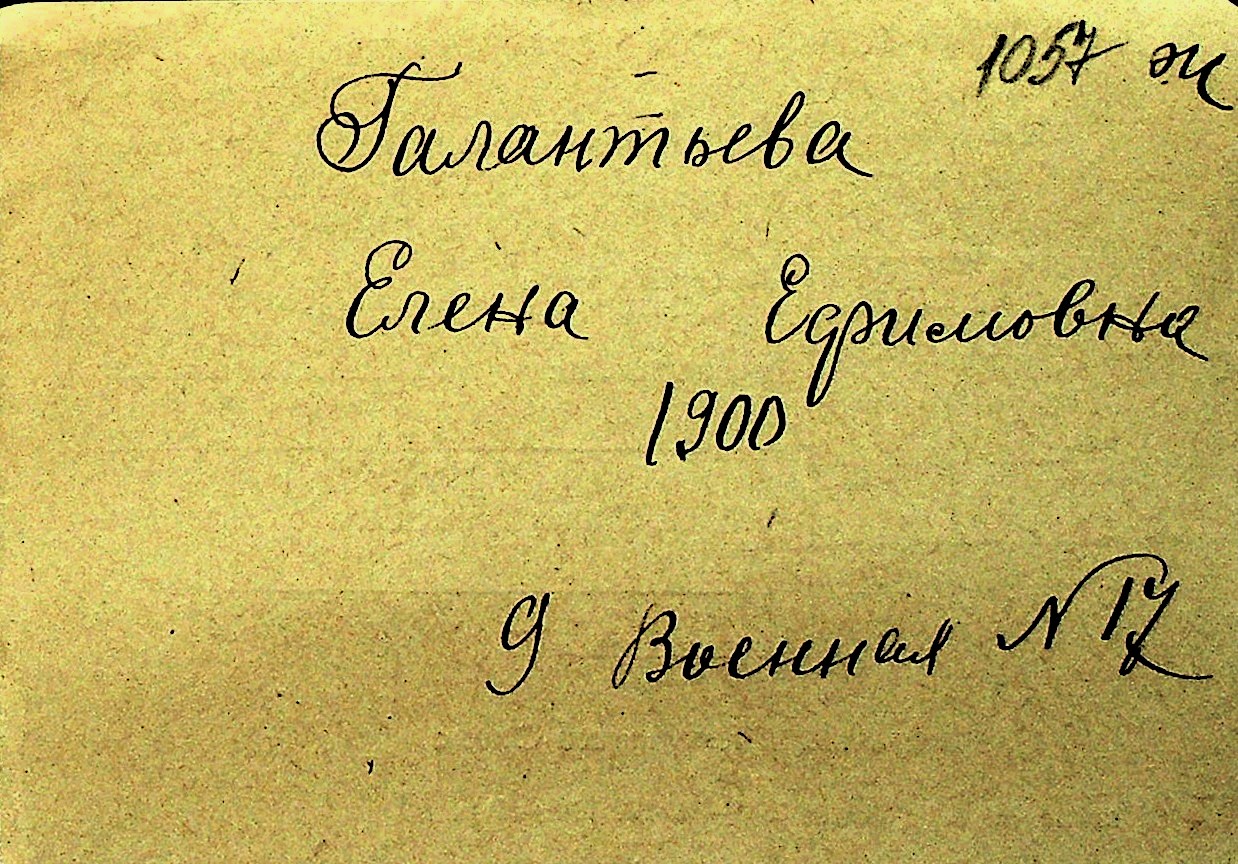 1057 ж
Галантьева
Елена Ефимовна
1900
9 Военная N 17